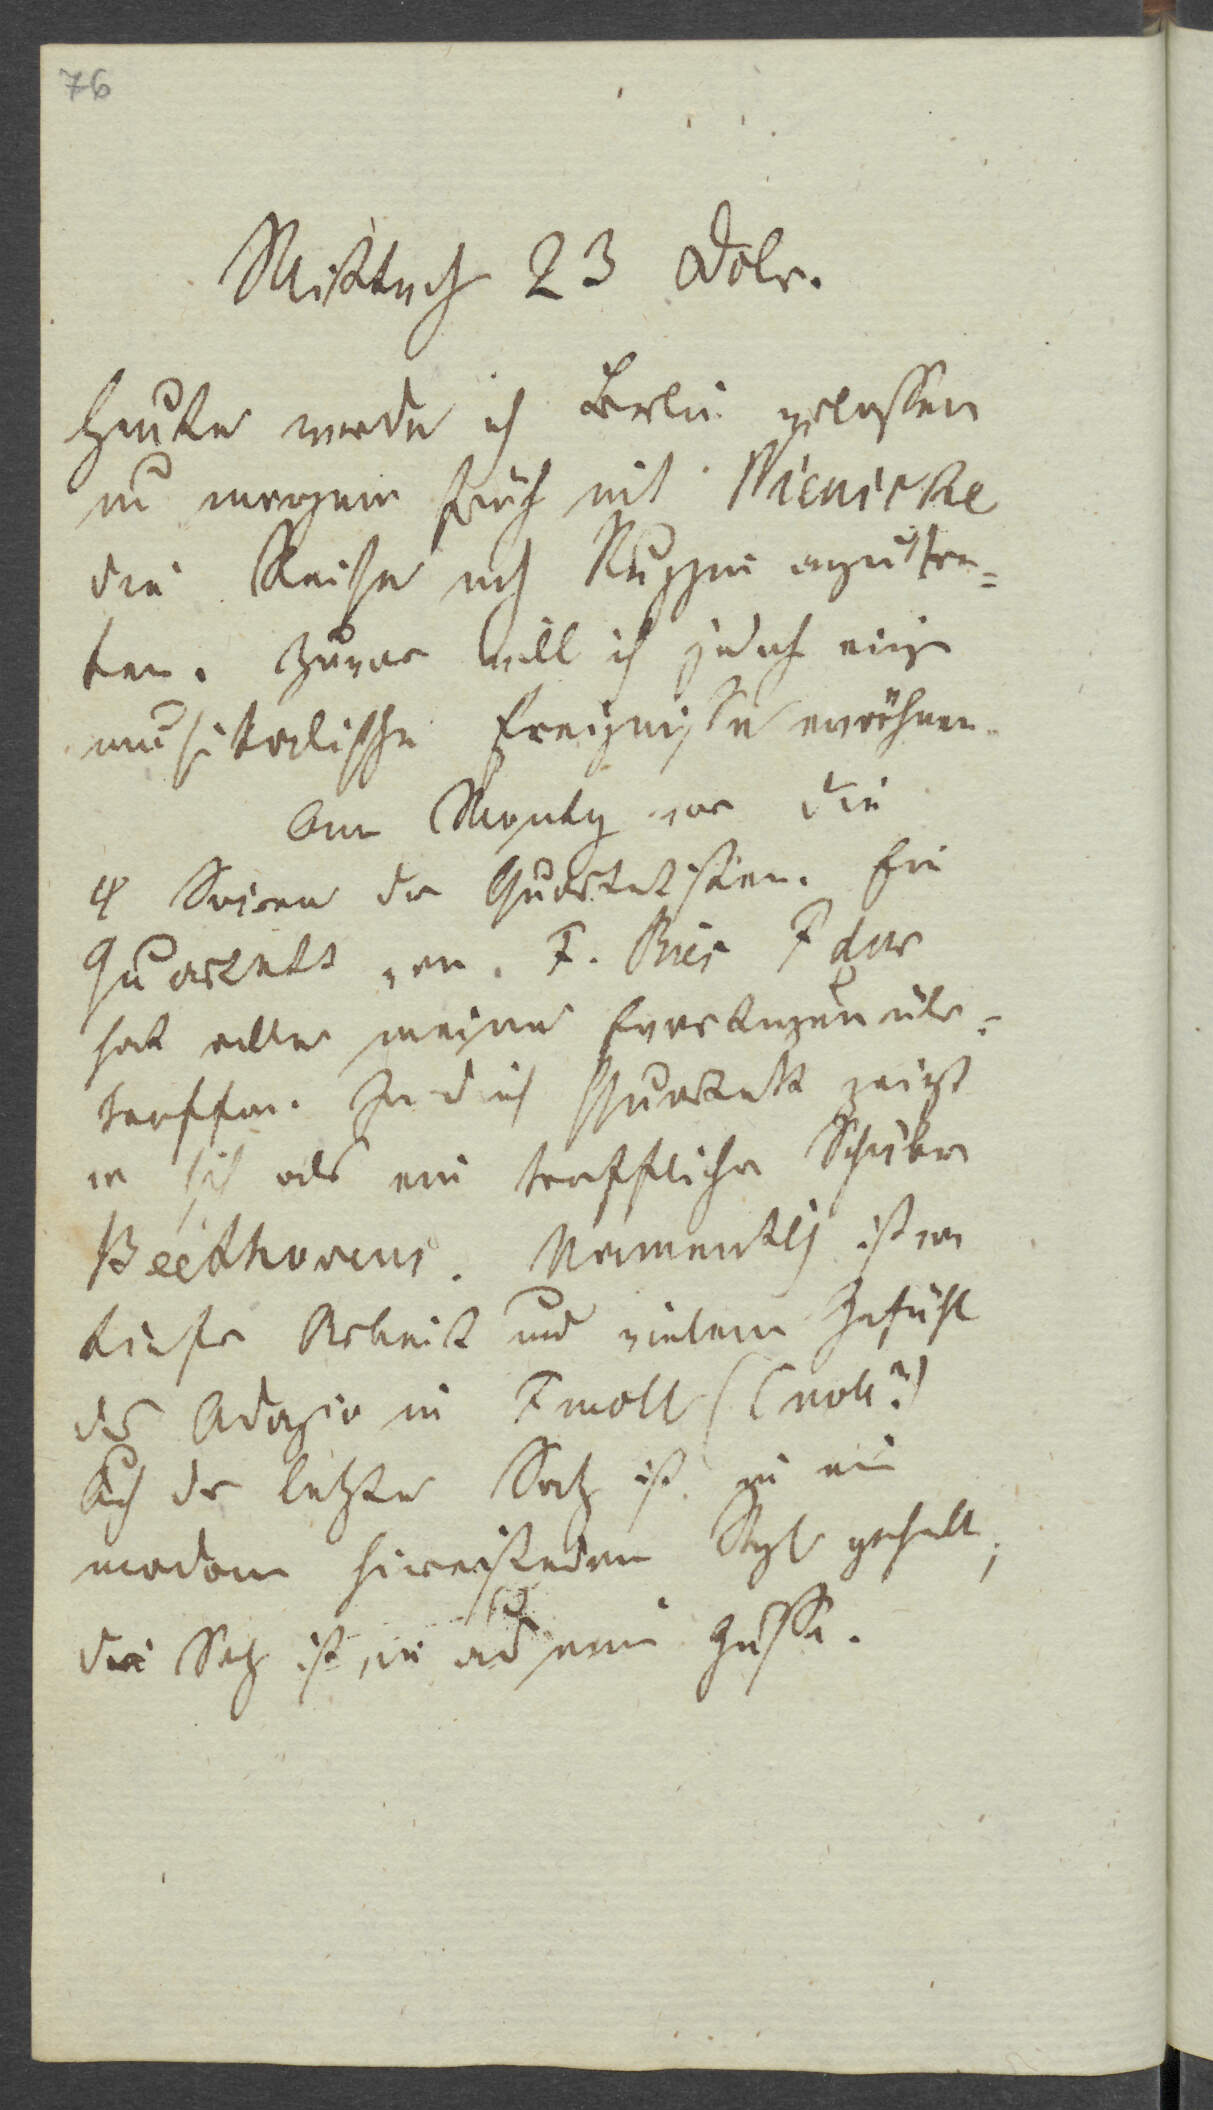 76
Mittwch 23 Dcbr.
Heute werde ich Berlin verlassen
um morgen früh mit Wienicke
die Reise nach Ruppin anzutre=
ten. Zuvor will ich jedoch einige
musikalische Ereignisse erwähnen.
Am Montag war die
4 Soiree der Quartetisten. Ein
Quartett von F. Ries F dur
hat alle meine Erwartungen über=
troffen. In dies Quartett zeigt
er sich als ein trefflicher Schüler
Beethovens. Namentlich ist von
tiefer Arbeit und vielem Gefühl
das Adagio in Fmoll (C moll?)
Auch der letzte Satz ist in ein
modern Styl gehalt,
der Satz ist wie aus einem Gusse.